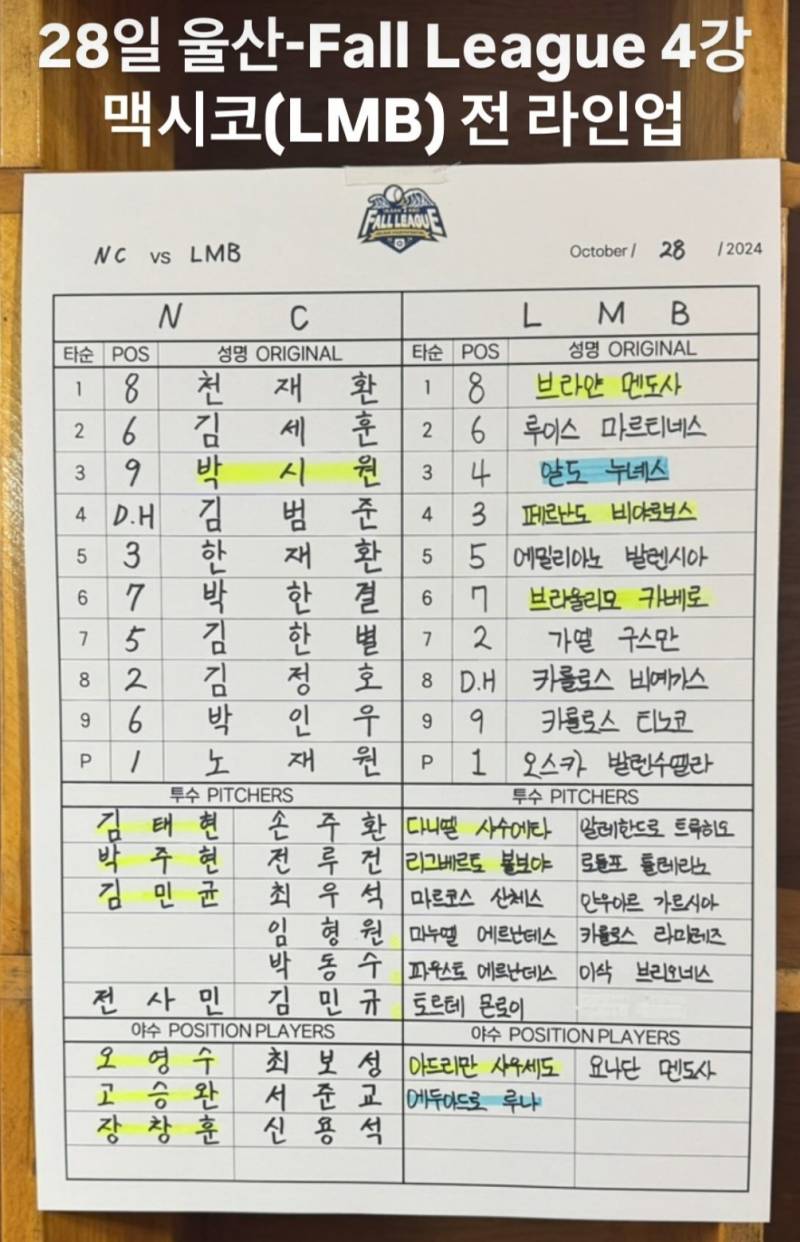 28일 울산-Fall League 4강
맥시코(LMB) 전 라인업
FALL LEAGUE
NC vs LMB
October / 28 / 2024
N C L M B
타순 POS 성명 ORIGINAL 타순 POS 성명 ORIGINAL
1 8 천 재 환 1 8 브라얀 멘도사
2 6 김 세 훈 2 6 루이스 마르티네스
3 9 박 시 원 3 4 알도 누녜스
4 D.H 김 범 준 4 3 페르난도 비야로보스
5 3 한 재 환 5 5 에밀리아노 발렌시아
6 7 박 한 결 6 7 브라울리오 카베로
7 5 김 한 별 7 2 가엘 구스만
8 2 김 정 호 8 D.H 카를로스 비예가스
9 6 박 인 우 9 9 카를로스 티노코
P 1 노 재 원 P 1 오스카 발렌수엘라
투수 PITCHERS 투수 PITCHERS
김 태 현 손 주 환 다니엘 사수에타 알레한드로 트룩히오
박 주 현 전 루 건 리그베르토 볼보아 로돌포
김 민 균 최 우 석 마르코스 산체스 안우아르 가르시아
임 형 원 마누엘 에르난데스 카를로스 라미레즈
박 동 수 파우스토 에르난데스 이삭 브리오네스
전 사 민 김 민 규 토르테 몬로이
야수 POSITION PLAYERS 야수 POSITION PLAYERS
오 영 수 최 보 성 아드리만 사우세도 요나단 멘도사
고 승 완 서 준 교 에두아드로 루나
장 창 훈 신 용 석